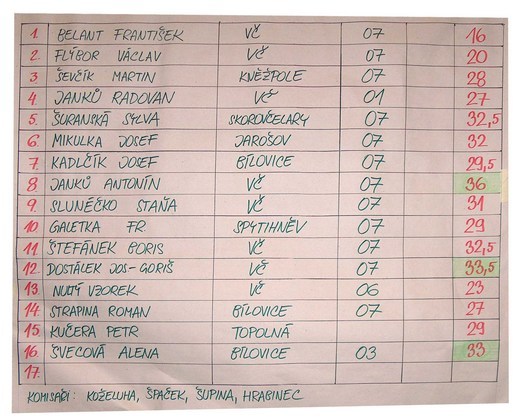 1. BELANT FRANTIŠEK VČ 07 16
2. FLÝBOR VÁCLAV VČ 07 20
3 ŠEVČÍK MARTIN KNĚŽPOLE 07 28
4. JANKŮ RADOVAN VČ 01 27
5. ŠURANSKÁ SYLVA SKOROVČELARY 07 32,5
6. MIKULKA JOSEF JAROŠOV 07 32
7. KADLČÍK JOSEF BÍLOVICE 07 29,5
8 JANKŮ ANTONÍN VČ 07 36
9. SLUNÉČKO STAŇA VČ 07 31
10. GALETKA FR SPYTIHNĚV 07 29
11. ŠTEFÁNEK BORIS VČ 07 32,5
12. DOSTÁLEK JOS-GORIŠ VČ 07 33,5
13. NUTÝ VZOREK VČ 06 23
14 STRAPINA ROMAN BÍLOVICE 07 27
15 KUČERA PETR TOPOLNÁ 29
16. ŠVECOVÁ ALENA BÍLOVICE 03 33
17.
KOMISAŘI: KOŽELUHA, ŠPAČEK, ŠUPINA, HRABINEC